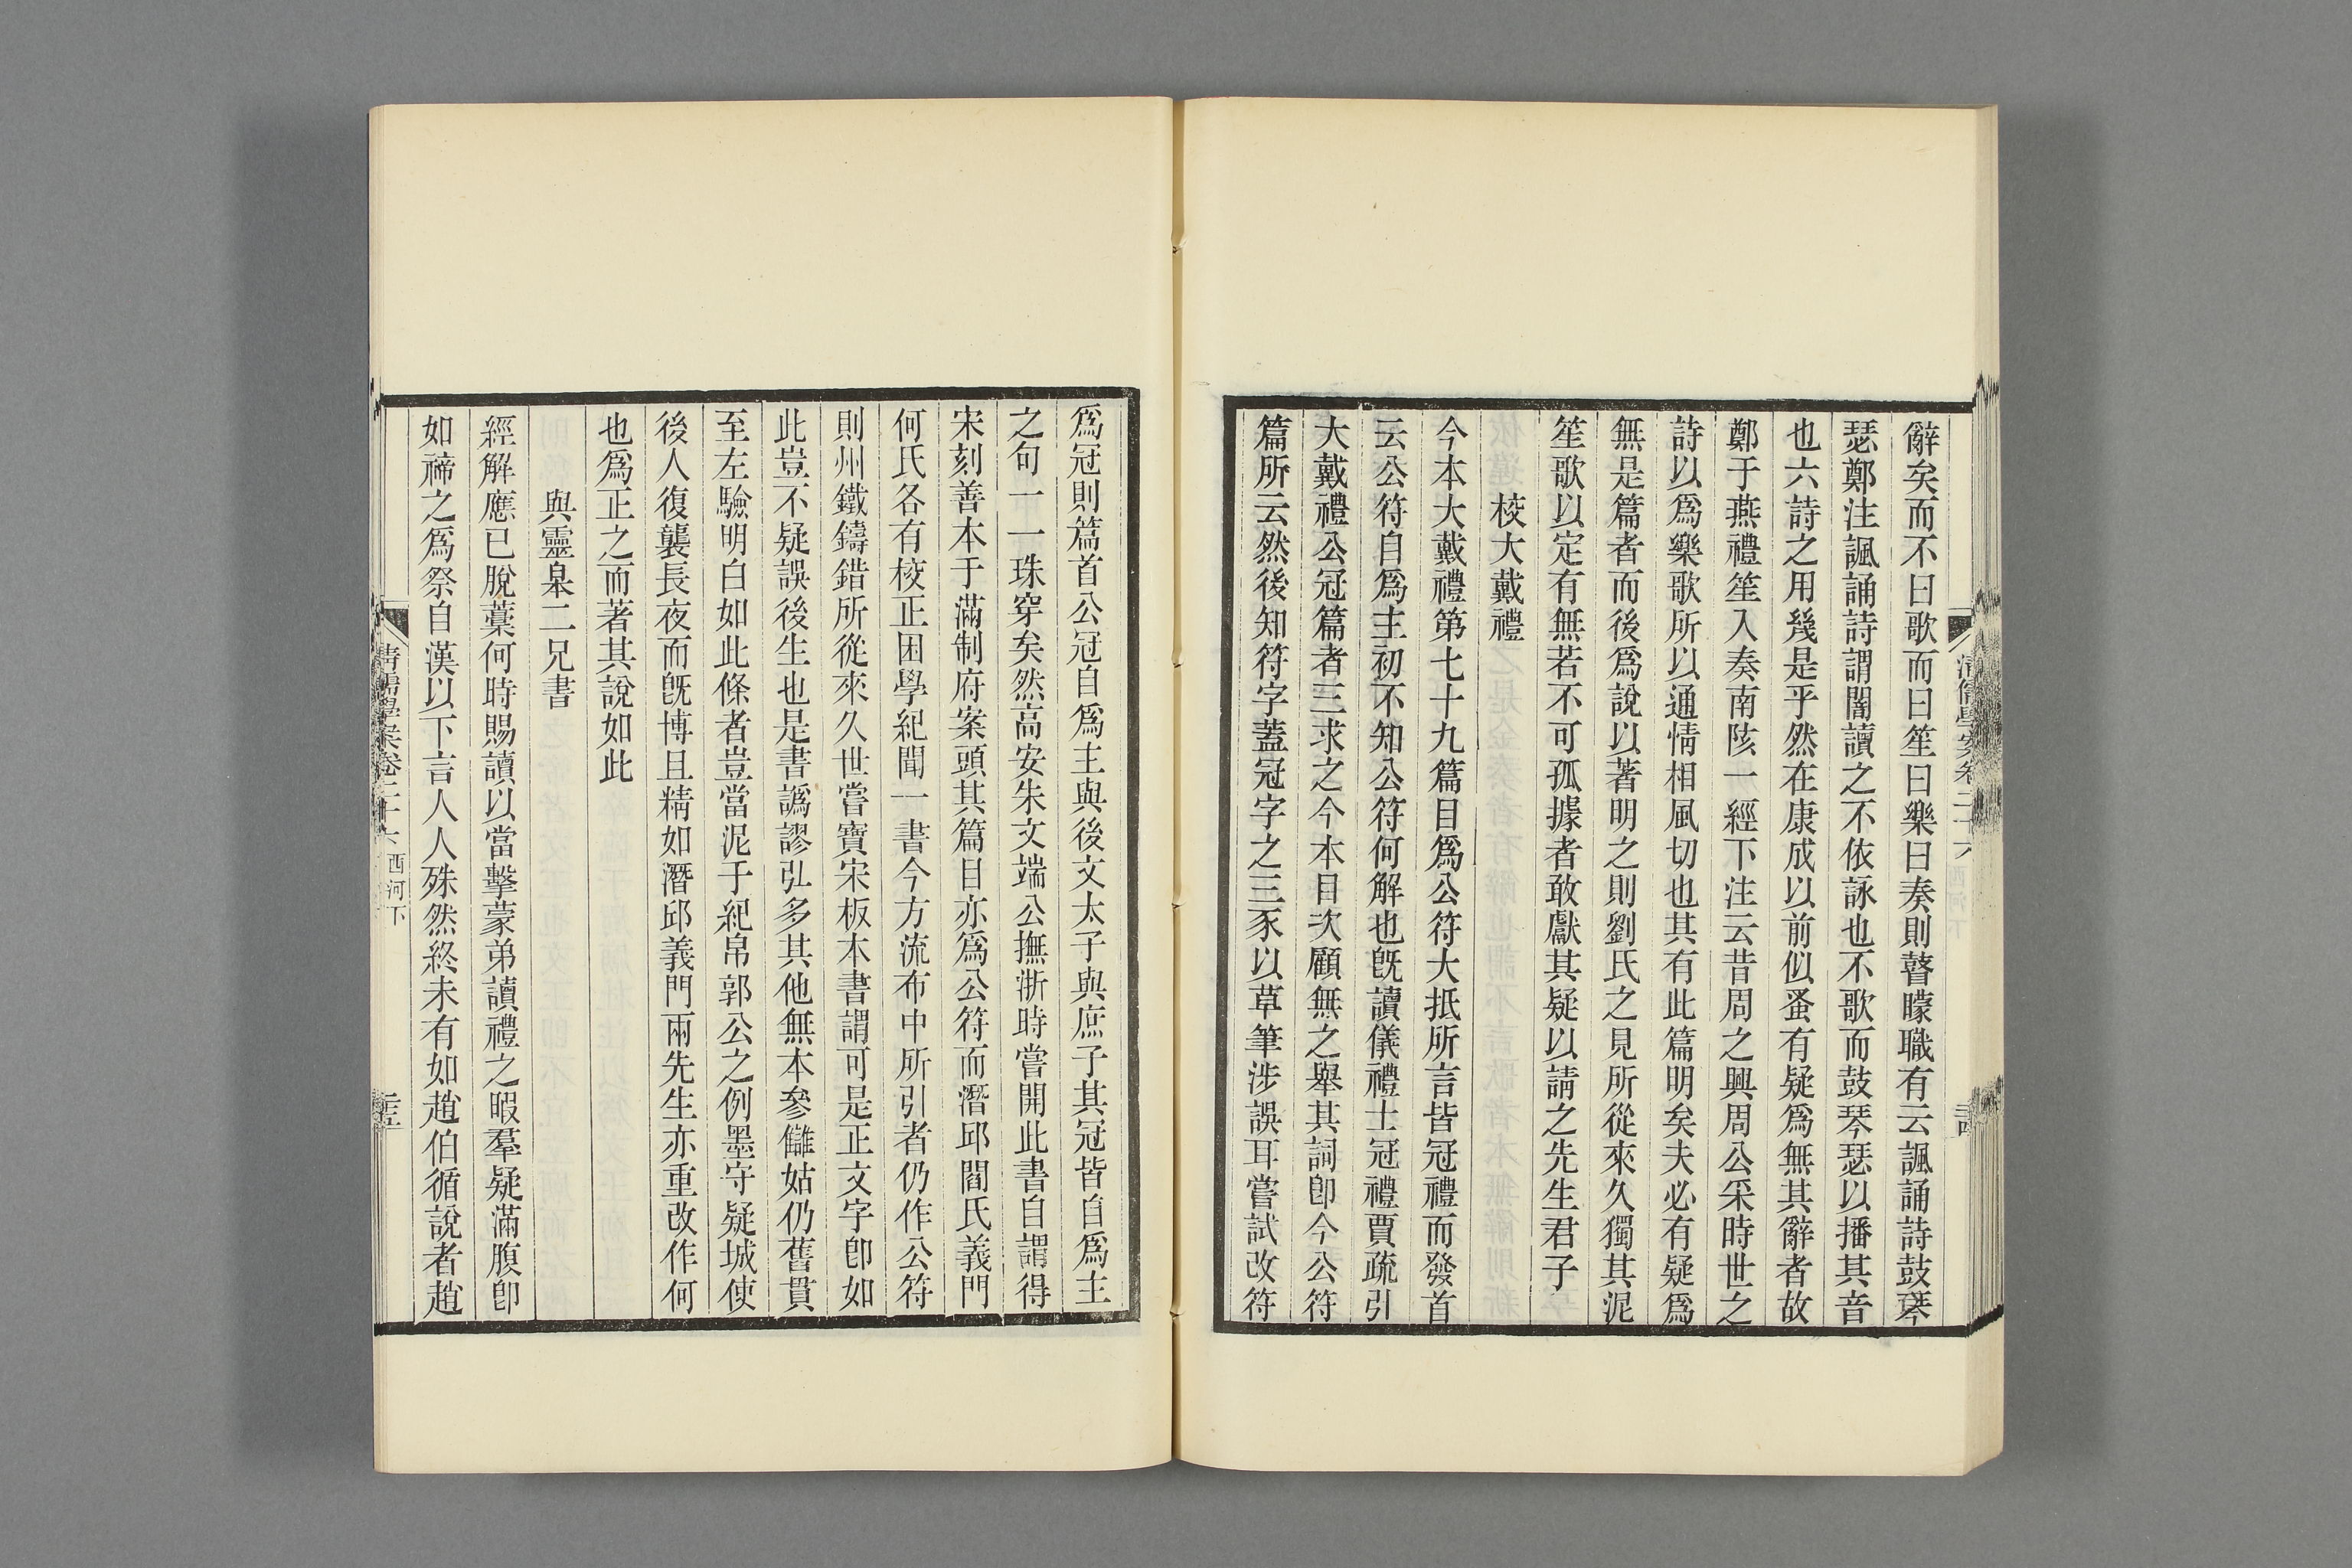 辭矣而不曰歌而曰笙曰樂曰奏則瞽矇職有云諷誦詩鼓琴
瑟鄭注諷誦詩謂闇讀之不依詠也不歌而鼓琴瑟以播其音
也六詩之用幾是乎然在康成以前似蚤有疑爲無其辭者故
鄭于燕禮笙入奏南陔一經下注云昔周之興周公采時世之
詩以爲樂歌所以通情相風切也其有此篇明矣夫必有疑爲
無是篇者而後爲說以著明之則劉氏之見所從來久獨其泥
笙歌以定有無若不可孤據者敢獻其疑以請之先生君子
校大戴禮
今本大戴禮第七十九篇目爲公符大抵所言皆冠禮而發首
云公符自爲主初不知公符何解也旣讀儀禮士冠禮賈疏引
大戴禮公冠篇者三求之今本目次顧無之舉其詞卽今公符
篇所云然後知符字蓋冠字之三豕以草筆涉誤耳嘗試改符
爲冠則篇首公冠自爲主與後文太子與庶子其冠皆自爲主
之句一一珠穿矣然高安朱文端公撫浙時嘗開此書自謂得
宋刻善本于滿制府案頭其篇目亦爲公符而潛邱閻氏義門
何氏各有校正困學紀聞一書今方流布中所引者仍作公符
則州鐵鑄錯所從來久世嘗寶宋板本書謂可是正文字卽如
此豈不疑誤後生也是書譌謬弘多其他無本參讎姑仍舊貫
至左驗明白如此條者豈當泥于紀帛郭公之例墨守疑城使
後人復襲長夜而旣博且精如潛邱義門兩先生亦重改作何
也爲正之而著其說如此
與靈皋二兄書
經解應已脫藁何時賜讀以當擊蒙弟讀禮之暇羣疑滿腹卽
如禘之爲祭自漢以下言人人殊然終未有如趙伯循說者趙
清儒學案卷二十六 西河下